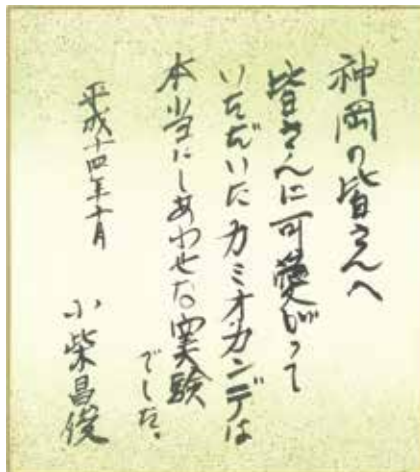 神岡の皆さんへ
皆さんに可愛がって
いただいたカミオカンデは
本当にしあわせな実験
でした。
平成十四年十月
小柴昌俊